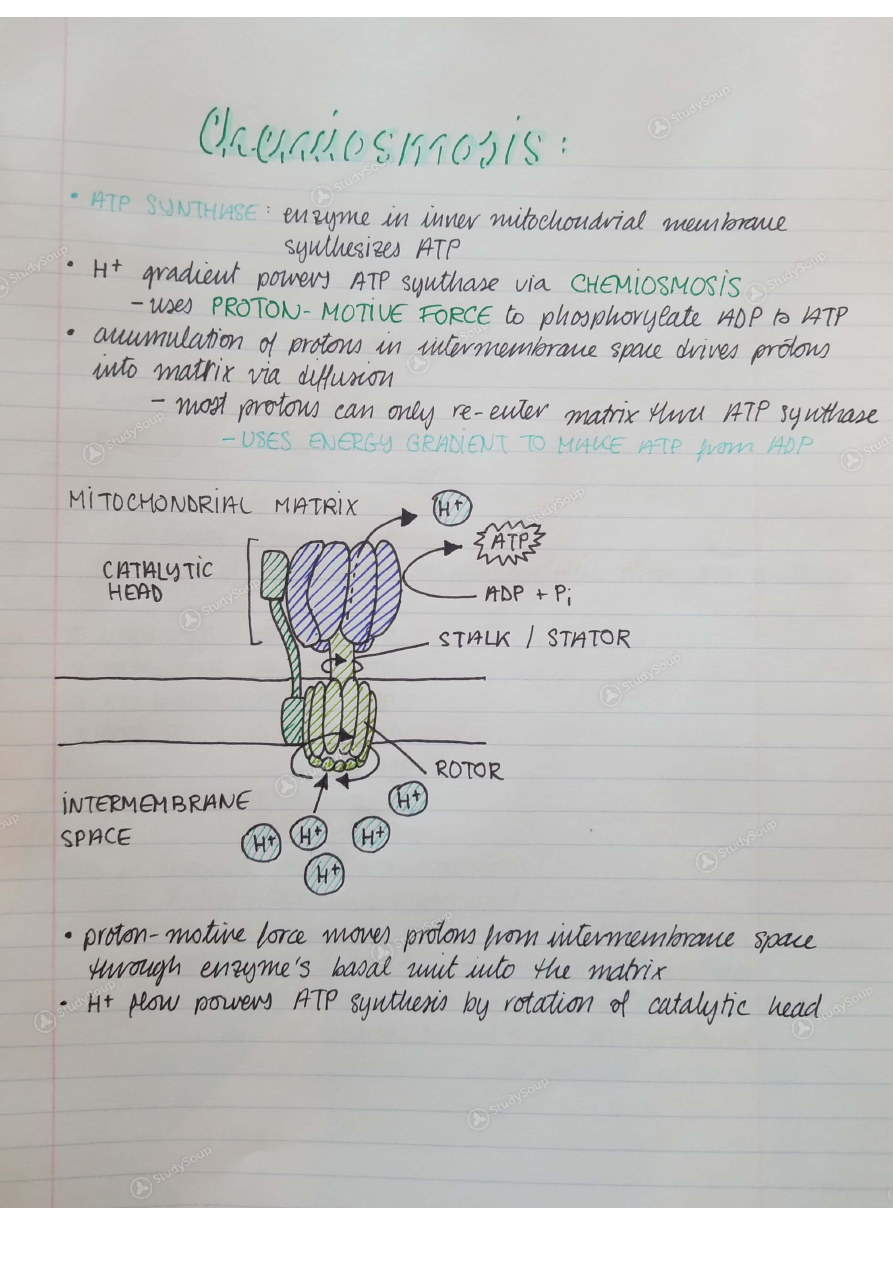 Chemiosmosis:
• ATP SYNTHASE: enzyme in inner mitochondrial membrane
synthesizes ATP
• H+ gradient powers ATP synthase via CHEMIOSMOSIS
- uses PROTON-MOTIVE FORCE to phosphorylate ADP to ATP
• accumulation of protons in intermembrane space drives protons
into matrix via diffusion
- most protons can only re-enter matrix thru ATP synthase
- USES ENERGY GRADIENT TO MAKE ATP from ADP
MITOCHONDRIAL MATRIX
H+
ATP
CATALYTIC
HEAD
ADP + Pi
STALK / STATOR
ROTOR
INTERMEMBRANE
SPACE
H+
H+
H+
H+
H+
• proton-motive force moves protons from intermembrane space
through enzyme's basal unit into the matrix
• H+ flow powers ATP synthesis by rotation of catalytic head
StudySoup
StudySoup
StudySoup
StudySoup
StudySoup
StudySoup
StudySoup
StudySoup
StudySoup
StudySoup
StudySoup
StudySoup
StudySoup